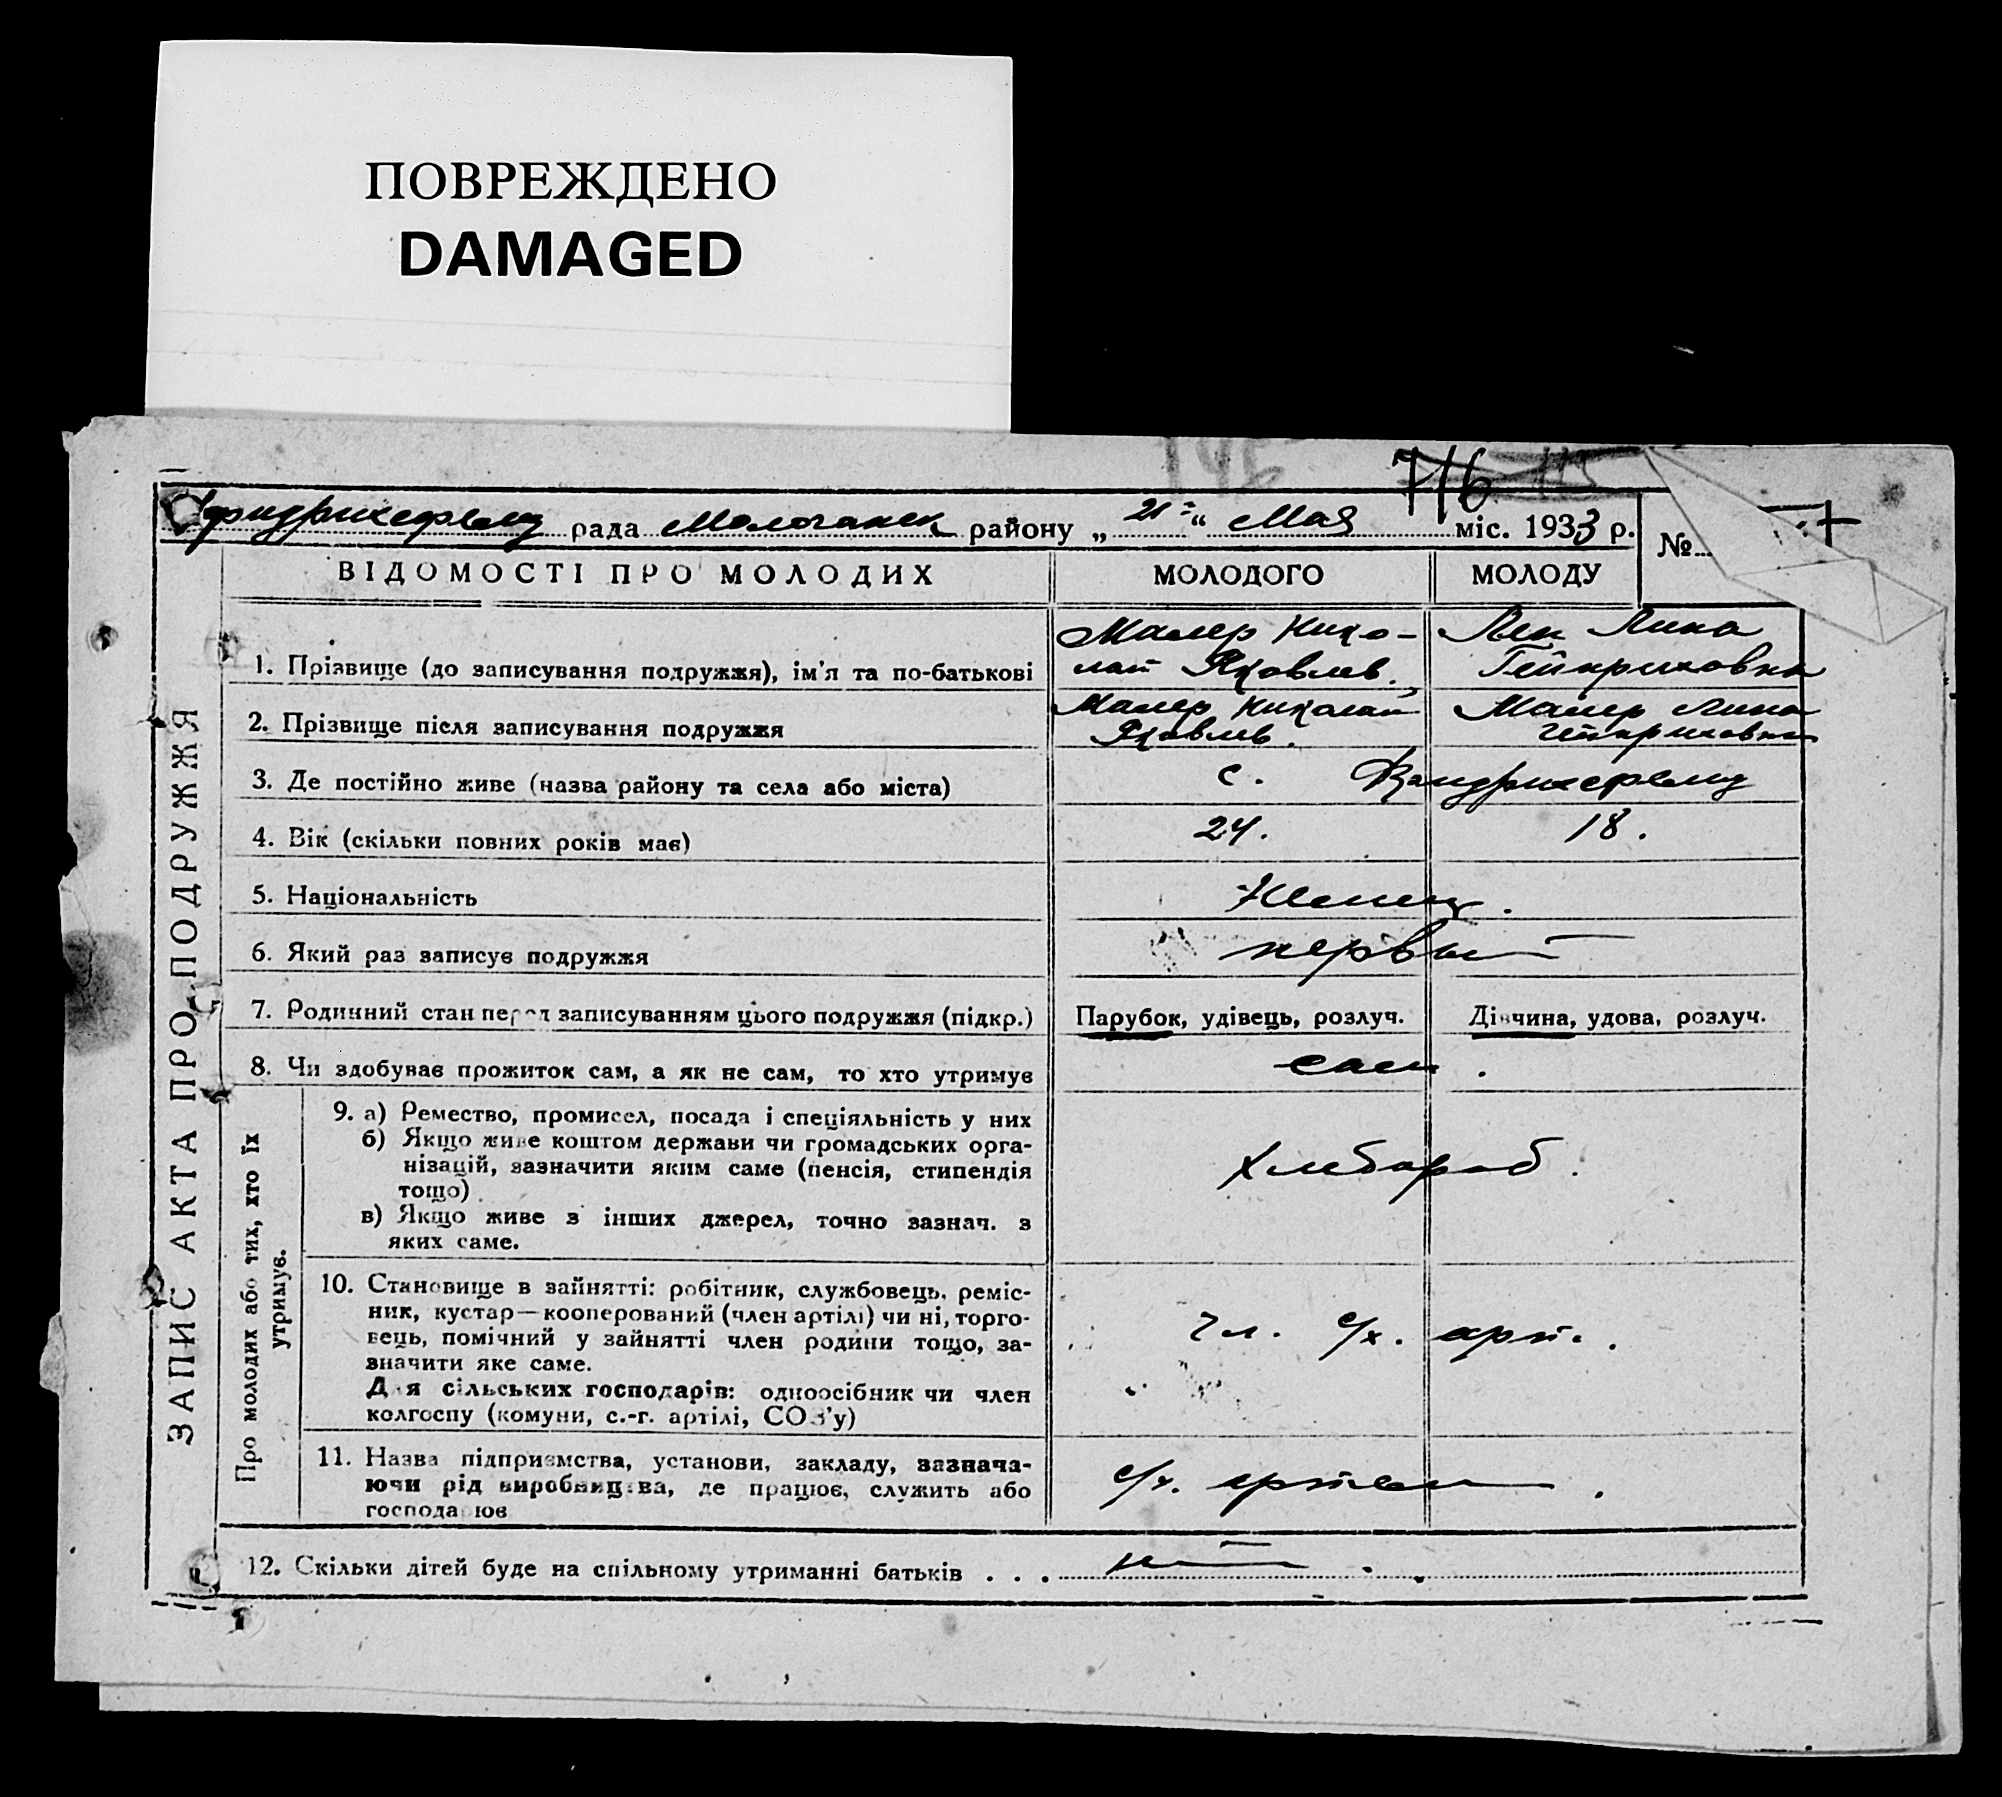 ПОВРЕЖДЕНО
DAMAGED
716
Фридрихсфельд рада Молочанск району „ 21 “ Мая міс. 1933 р.
№
ВІДОМОСТІ ПРО МОЛОДИХ МОЛОДОГО МОЛОДУ
ЗАПИС АКТА ПРО ПОДРУЖЖЯ
1. Прізвище (до записування подружжя), ім'я та по-батькові
Маер Нико-
лай Яковлев.
Лина
Гейнриховна
2. Прізвище після записування подружжя
Маер Николай
Яковлев.
Маер Лина
Гейнриховна
3. Де постійно живе (назва району та села або міста)
с.
4. Вік (скільки повних років має) 24. 18.
5. Національність Немец.
6. Який раз записує подружжя первый
7. Родинний стан перед записуванням цього подружжя (підкр.) Парубок, удівець, розлуч. Дівчина, удова, розлуч.
8. Чи здобував прожиток сам, а як не сам, то хто утримує сам.
Про молодих або тих, хто їх
утримує.
9. а) Ремество, промисел, посада і спеціяльність у них
б) Якщо живе коштом держави чи громадських орга-
нізацій, зазначити яким саме (пенсія, стипендія
тощо)
в) Якщо живе з інших джерел, точно зазнач. з
яких саме.
Хлебороб.
10. Становище в зайнятті: робітник, службовець, реміс-
ник, кустар—кооперований (член артілі) чи ні, торго-
вець, помічний у зайнятті член родини тощо, за-
значити яке саме.
Для сільських господарів: одноосібник чи член
колгоспу (комуни, с.-г. артілі, СОЗ'у)
чл. с/х. арт.
11. Назва підприємства, установи, закладу, зазнача-
ючи рід виробництва, де працює, служить або
господарює
с/х. артель.
12. Скільки дітей буде на спільному утриманні батьків . . . нет.